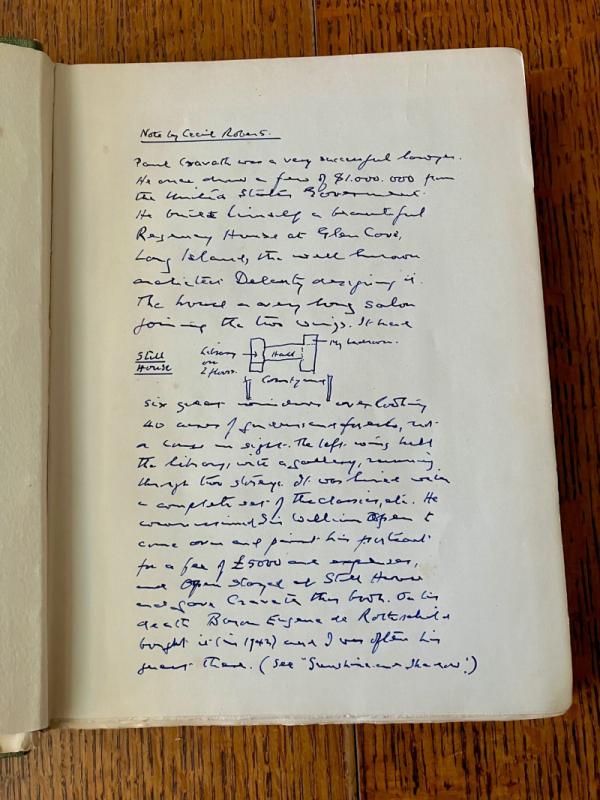 Note by Cecil Roberts.
Paul Cravath was a very successful lawyer.
He once drew a fee of $1.000.000 from
the United States Government.
He built himself a beautiful
Regency House at Glen Cove,
Long Island, the well known
architect Delanty designing it.
The house a very long salon
joining the two wings. It had
Still House
Library on 2 floors.
Hall
My bedroom.
Courtyard
six great windows overlooking
40 acres of gardens and forests, not
a house in sight. The left wing held
the library, with a gallery, running
through two storeys. It was lined with
a complete set of the classics, etc. He
commissioned Sir William Orpen to
come over and paint his portrait
for a fee of £5000 and expenses,
and Orpen stayed at Still House
and gave Cravath this book. On his
death Baron Eugene de Rothschild
bought it (in 1942) and I was often his
guest there. (See "Sunshine and Shadow".)